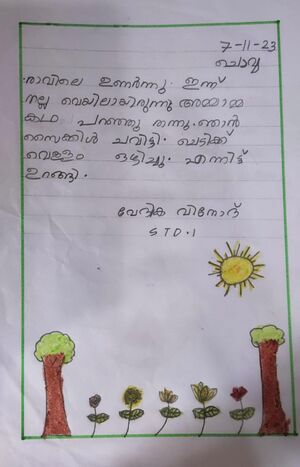 7-11-23
ചൊവ്വ
രാവിലെ ഉണർന്നു. ഇന്ന്
നല്ല വെയിലായിരുന്നു അമ്മാമ്മ
കഥ പറഞ്ഞു തന്നു. ഞാൻ
സൈക്കിൾ ചവിട്ടി. ചെടിക്ക്
വെള്ളം ഒഴിച്ചു. എന്നിട്ട്
ഉറങ്ങി.
വേദിക വിനോദ്
STD.1